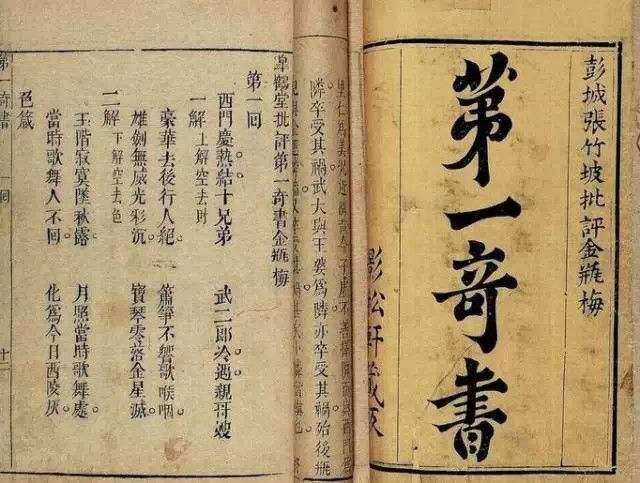 彭城張竹坡批評金瓶梅
第一奇書
影松軒藏板
隣卒受其禍武大與王婆爲隣亦卒受其禍殆後瓶
皐鶴堂批評第一奇書金瓶梅
第一回
西門慶熱結十兄弟 武二郎冷遇親哥嫂
一解 上解空去財
豪華去後行人絕 簫箏不響歌喉咽
雄劍無威光彩沉 寶琴零落金星滅
二解 下解空去色
玉階寂寞墜秋露 月照當時歌舞處
當時歌舞人不回 化爲今日西陵灰
色箴
第一奇書
回
十二